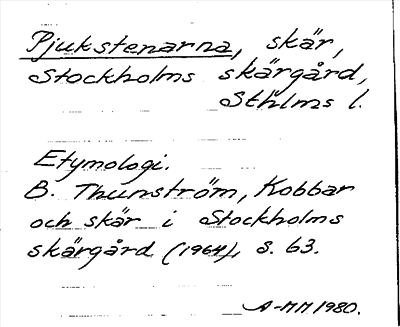 Pjukstenarna, skär,
Stockholms skärgård,
Sthlms l.
Etymologi.
B. Thunström, Kobbar
och skär i Stockholms
skärgård (1964), s. 63.
A-MM 1980.